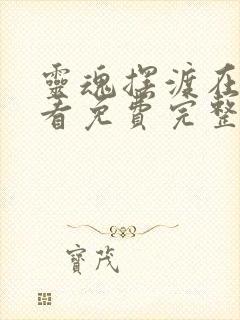 靈魂擺渡在
看免費完整
寶茂